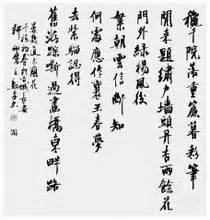 穐千院落重簾暮彩筆
閒來題繡戶墻頭丹杏雨餘花
門外綠楊風後
絮朝雲信斷知
何處應作襄王春夢
去紫騮認得
舊遊蹤嘶過畫橋東畔路
晏幾道木蘭花